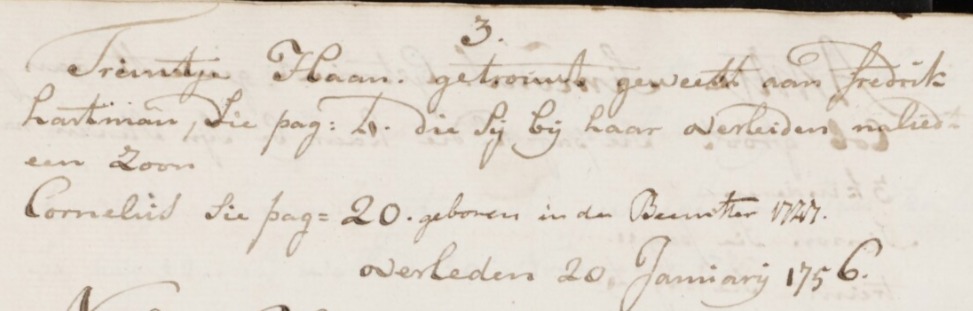 3.
Trientje Haan. getrouwt geweest aan fredrik
hartman, Sie pag: 5. die Sij bij haar overleiden naliedt
een Zoon
Cornelius Sie pag= 20. geboren in de Beemster 1727.
overleden 20 Januarij 1756.